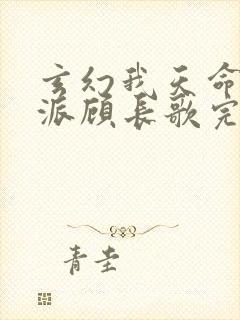 玄幻我天命
派顾长歌完
青圭